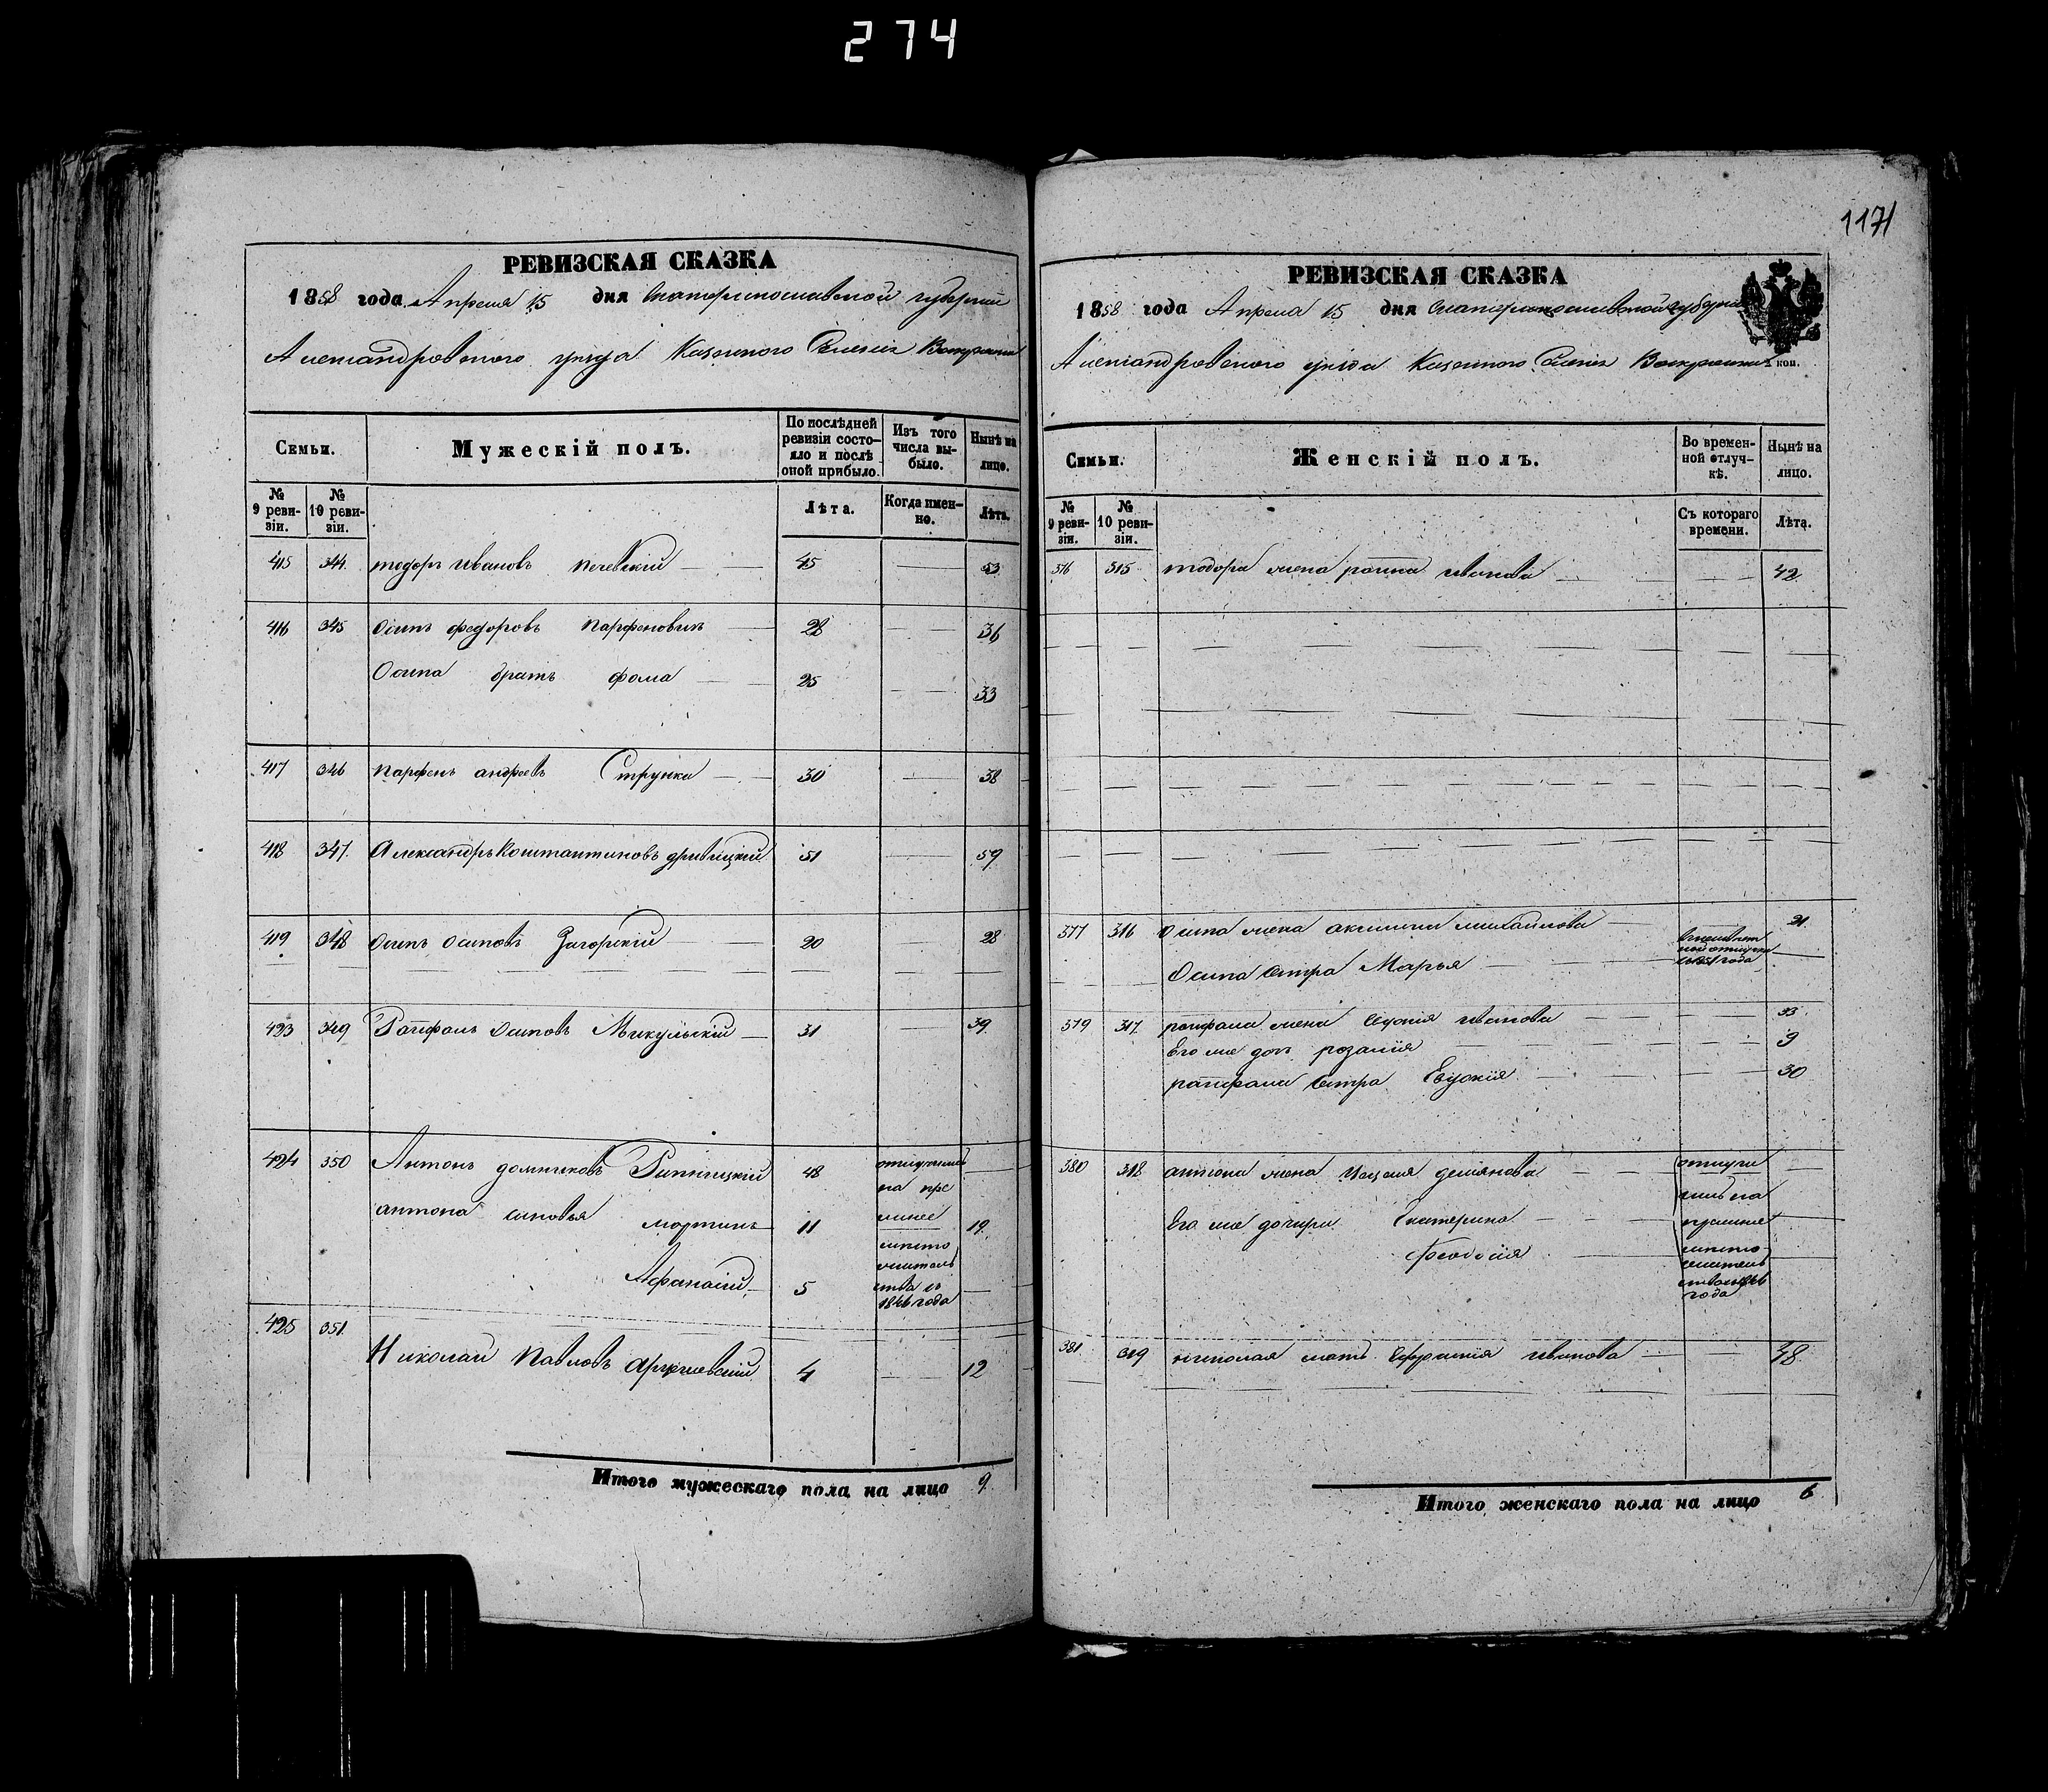 274
РЕВИЗСКАЯ СКАЗКА
1858 года Апреля 15 дня Екатеринославской губернии
Александровского уезда Казенного Селения Воскресенки
Семьи.
Мужескій полъ.
По послѣдней ревизіи состояло и послѣ оной прибыло.
Изъ того числа выбыло.
Нынѣ на лицо.
№ 9 ревизіи.
№ 10 ревизіи.
Лѣта.
Когда именно.
Лѣта.
415 344 тодоръ Ивановъ 45 53
416 345 Осипъ федоровъ парфеновичъ 28 36
Осипа братъ фома 25 33
417 346 парфенъ андреевъ Струнка 30 38
418 347. Александръ Константиновъ 51 59
419 348 Осипъ Осиповъ Загорскій 20 28
423 349 Рафаилъ Осиповъ Микульскій 31 39.
424 350 Антонъ 48
антона сыновья мартинъ 11 19.
Афанасій 5
отлучились
на пре
жнее
место
житель
ства съ
1846 года
425 351. Николай Павловъ 4 12
Итого мужескаго пола на лицо 9.
1171
РЕВИЗСКАЯ СКАЗКА
1858 года Апреля 15 дня Екатеринославской губернии
Александровского уезда Казенного Селения Воскресенки
2 коп.
Семьи.
Женскій полъ.
Во временной отлучкѣ.
Нынѣ на лицо.
№ 9 ревизіи.
№ 10 ревизіи.
Съ котораго времени.
Лѣта.
315 тодора жена Иванова 42
377 316 Осипа жена аксинья михайлова 21.
Осипа сестра Марья
года
379 317. рафаила жена Иванова 33.
Его же дочь розалія 9
рафаила сестра Евдокія 30
380 318 антона жена демянова
Его же дочири Екатерина
Феодосія
отлучи
лись на
прежнее
место
житель
года
381 319 николая мать Иванова 48
Итого женскаго пола на лицо 6